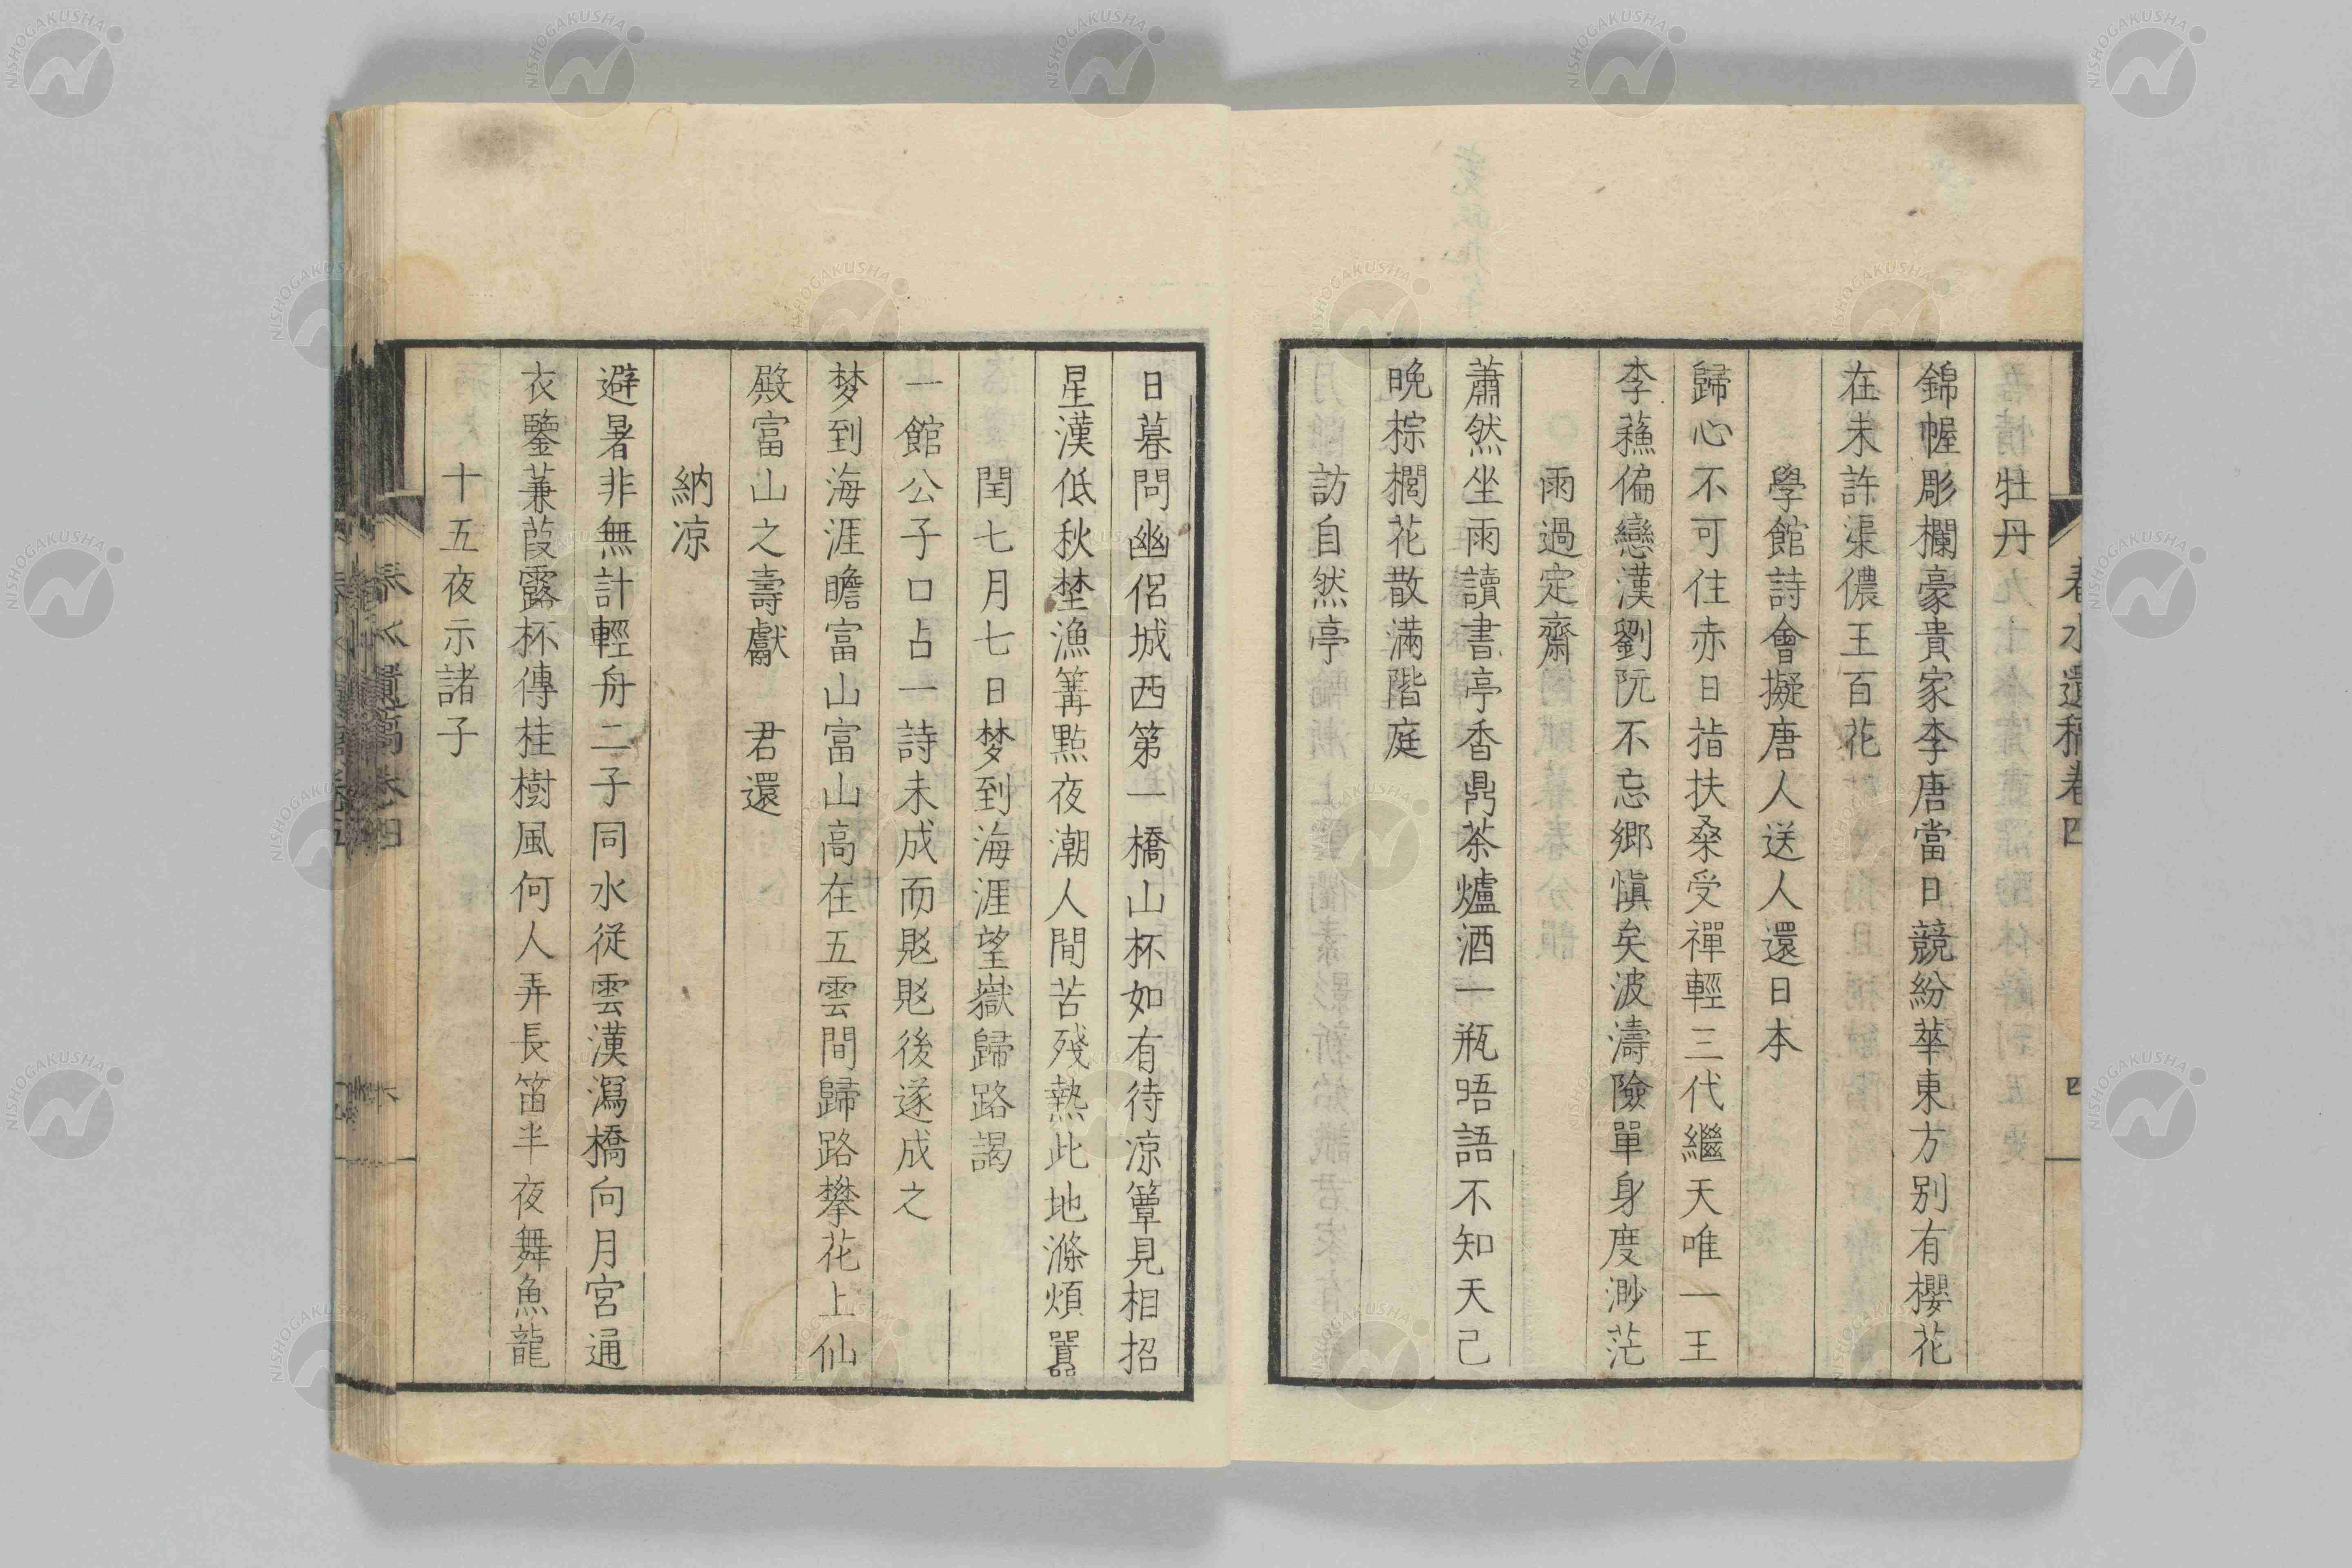 春水遺稿卷四
四
牡丹
錦幄彫欄豪貴家李唐當日競紛華東方別有櫻花
在未許渠儂王百花
學館詩會擬唐人送人還日本
歸心不可住赤日指扶桑受禪輕三代繼天唯一王
李蘓偏戀漢劉阮不忘鄉愼矣波濤險單身度渺茫
雨過定齋
蕭然坐雨讀書亭香鼎茶爐酒一瓶晤語不知天已
晩棕櫚花散滿階庭
訪自然亭
日暮問幽侶城西第一橋山杯如有待凉簟見相招
星漢低秋埜漁篝㸃夜潮人間苦殘熱此地滌煩囂
閏七月七日梦到海涯望嶽歸路謁
一館公子口占一詩未成而覐覐後遂成之
梦到海涯瞻富山富山高在五雲間歸路攀花上仙
殿富山之壽獻 君還
納凉
避暑非無計輕舟二子同水從雲漢瀉橋向月宮通
衣鑒蒹葭露杯傳桂樹風何人弄長笛半夜舞魚龍
十五夜示諸子
NISHOGAKUSHA